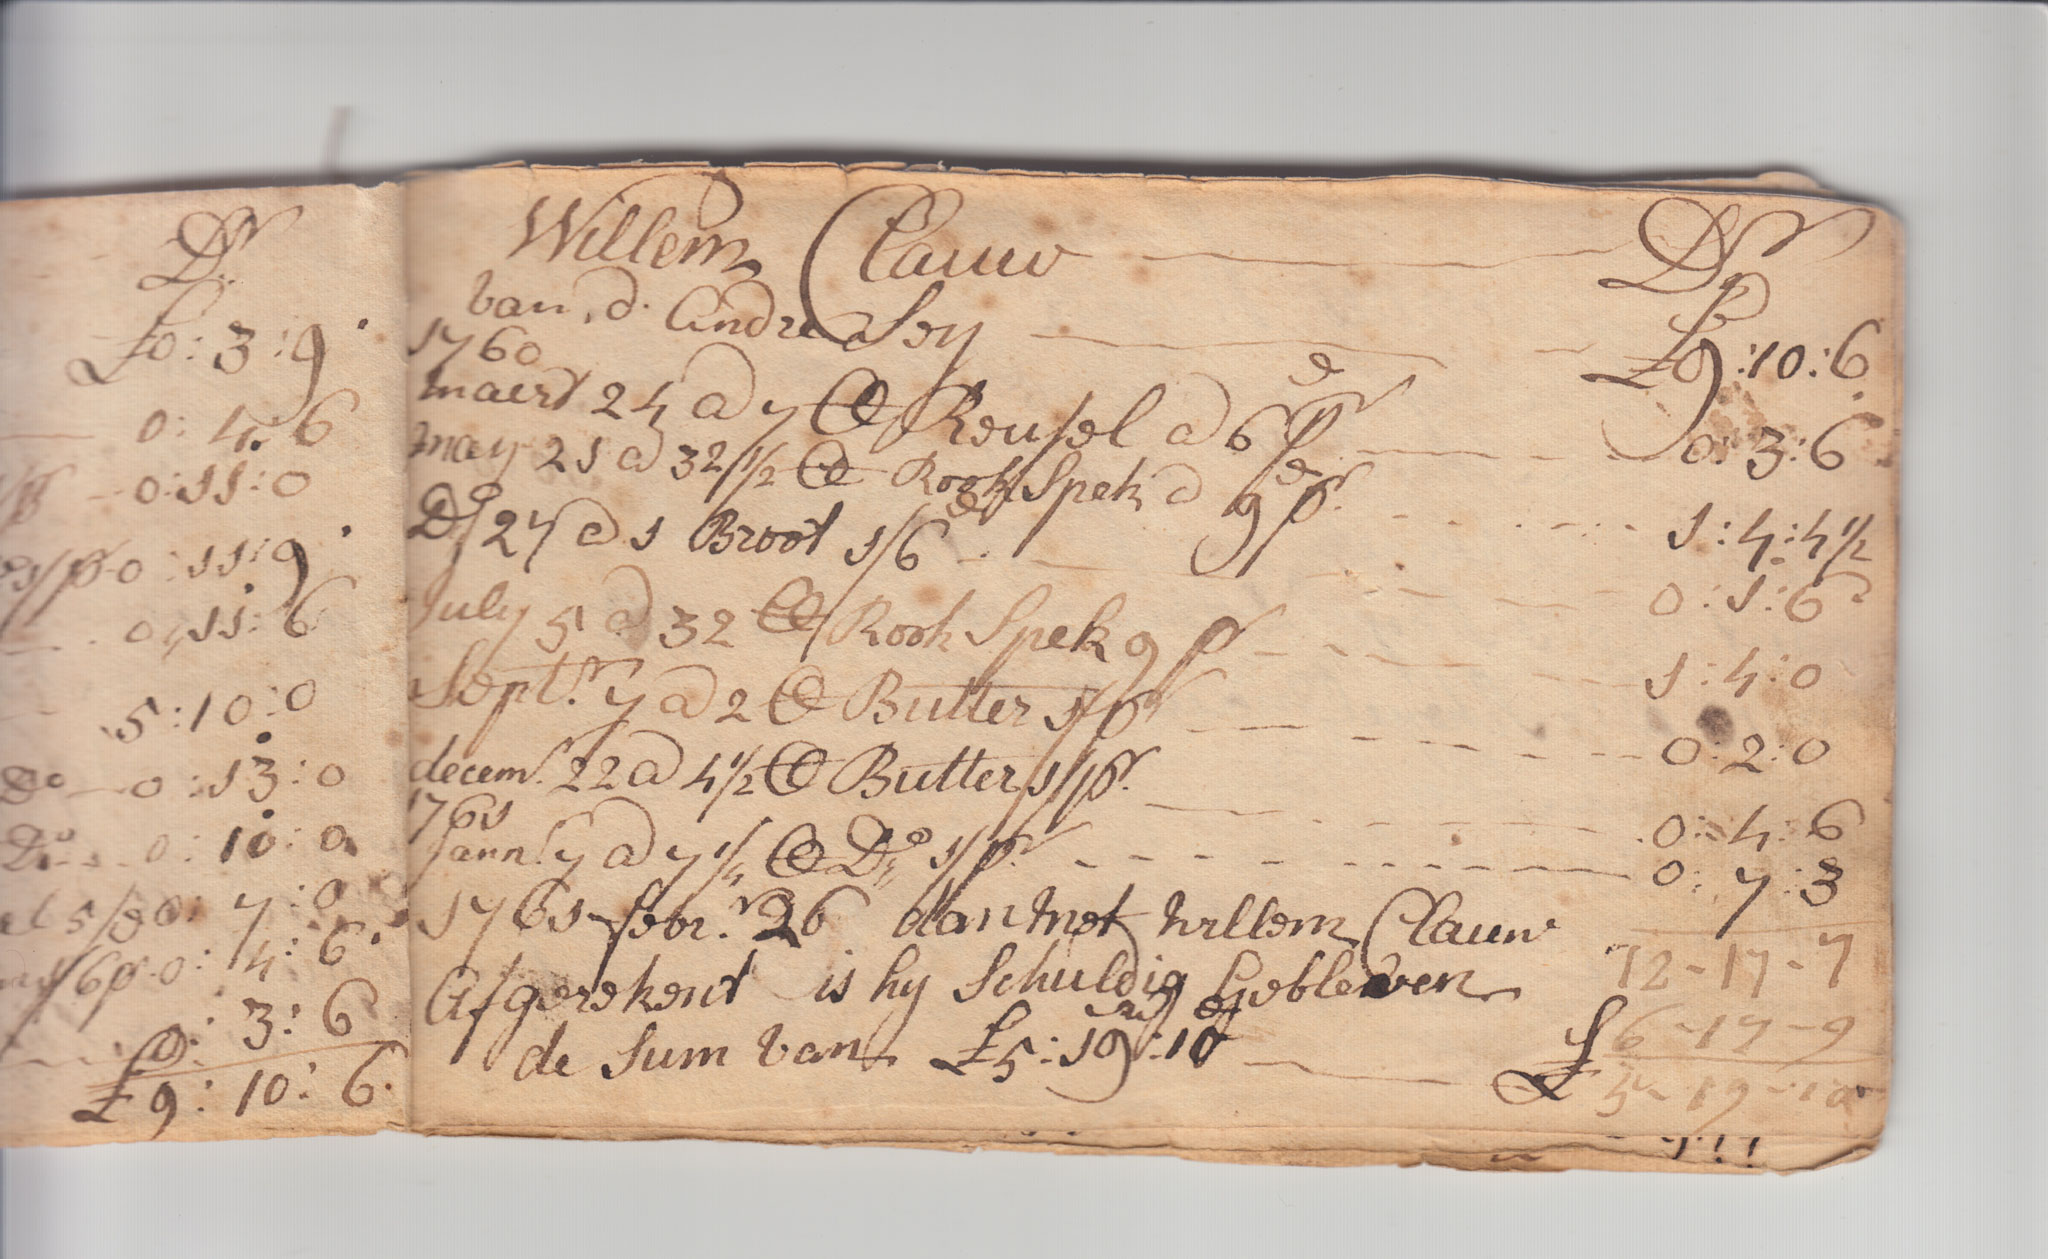 Dr
£0:3:9
0:4:6
0:11:0
0:11:9
0:11:6
5:10:0
Do 0:13:0
Do 0:10:0
0:7:0
0:4:6
0:3:6
£9:10:6
Willem Clauw Dr
van d. andre Sey £9:10:6
1760
maert 24 a 7 lb Reusel a 6d pr 0:3:6
mey 21 a 32 1/2 lb Rook Spek a 9d pr 1:4:4 1/2
Do 27 a 1 Broot 1/6d 0:1:6
July 5 a 32 lb Rook Spek 9 pr 1:4:0
Septr. 7 a 2 lb Butter 1/pr 0:2:0
decemr. 22 a 4 1/2 lb Butter 1/pr 0:4:6
1761
Jann. 7 a 7 1/4 lb Do 1/pr 0:7:3
1761 febr. 26 dan met willem Clauw 12-17-7
Afgerekent is hy Schuldig Gebleeven 6-17-9
de Sum van £5:19:10 £5-19-10